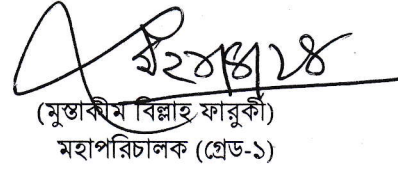 (মুস্তাকীম বিল্লাহ ফারুকী)
মহাপরিচালক (গ্রেড-১)